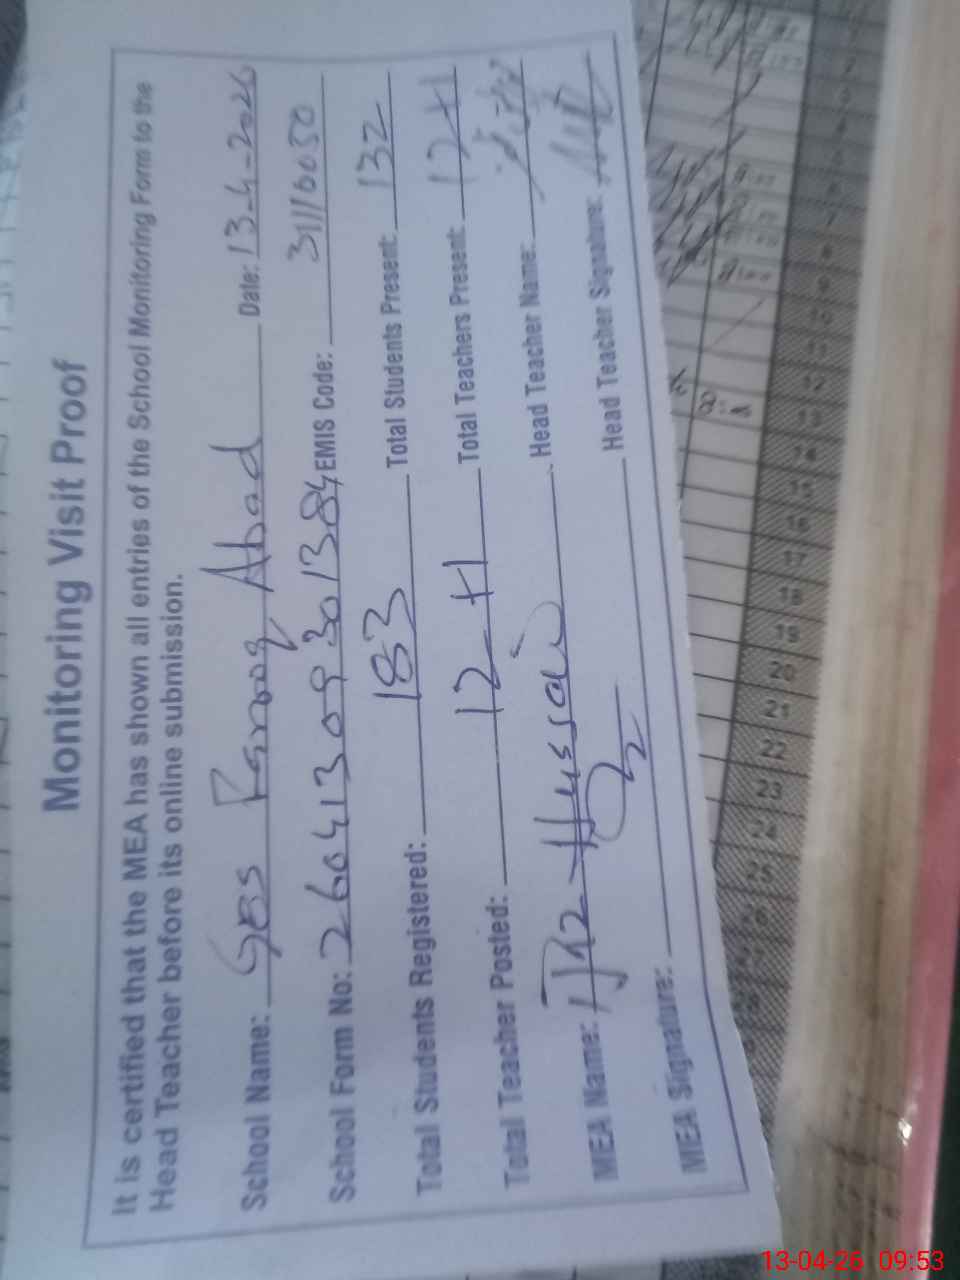 Monitoring Visit Proof
It is certified that the MEA has shown all entries of the School Monitoring Form to the
Head Teacher before its online submission.
School Name: GBS Farooq Abad Date: 13-4-2026
School Form No: 26041309301384 EMIS Code: 31110050
Total Students Registered: 183 Total Students Present: 132
Total Teacher Posted: 12+1 Total Teachers Present: 12+1
MEA Name: Hussain Head Teacher Name:
MEA Signature: Head Teacher Signature:
12
13
14
15
16
17
18
19
20
21
22
23
24
13-04-26 09:53